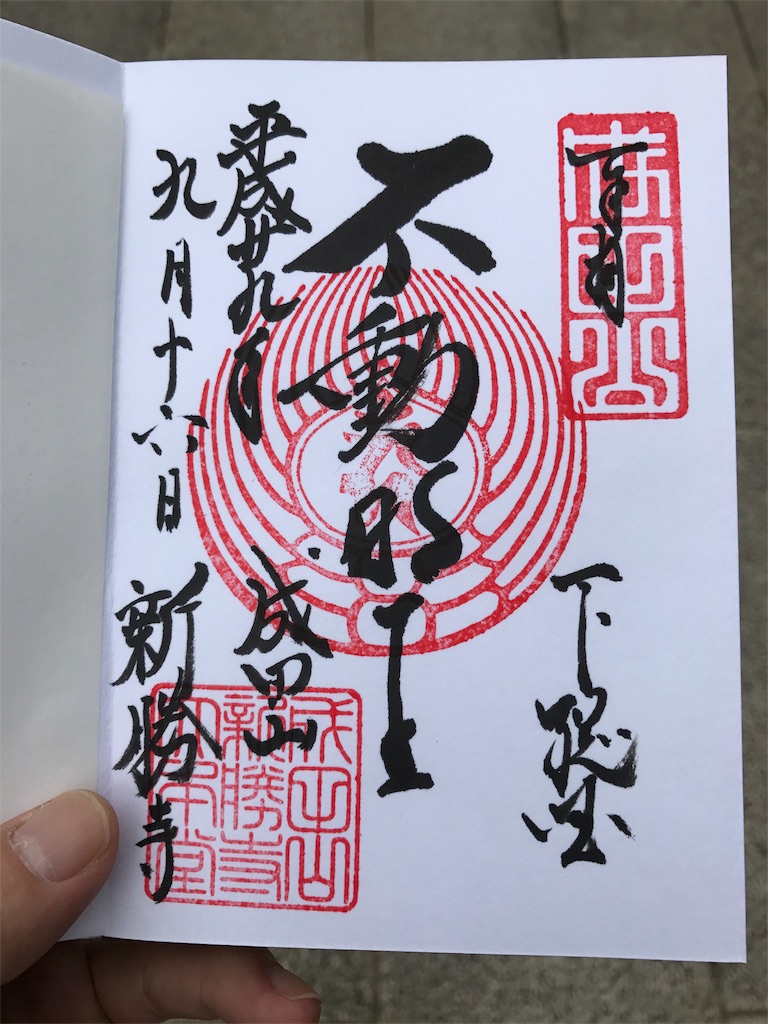 奉拝
成田山
下総国
不動明王
平成廿九年
九月十六日
成田山
新勝寺
成田山
新勝寺
本堂